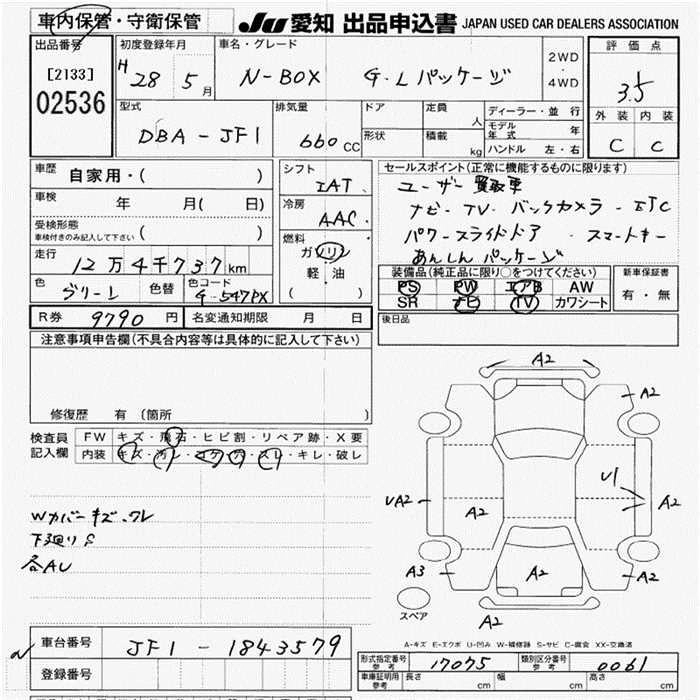 車内保管・守衛保管 JU 愛知 出品申込書 JAPAN USED CAR DEALERS ASSOCIATION
出品番号 初度登録年月 車名・グレード 評価点
[2133] H 28 5月 N-BOX G・Lパッケージ 2WD・4WD 3.5
02536 外装 内装
型式 排気量 ドア 定員 人 ディーラー・並行
DBA-JF1 660cc 形状 積載 kg モデル年式 年 C C
ハンドル 左・右
車歴 自家用・( ) シフト セールスポイント(正常に機能するものに限ります)
IAT ユーザー買取車
車検 年 月( 日) 冷房 ナビ・TV・バックカメラ・ETC
受検形態 AAC パワースライドドア・スマートキー
車検付きのみ記入して下さい ( ) 燃料 あんしんパッケージ
走行 12万4千737km ガソリン
軽・油
( )
装備品(純正品に限り○をつけてください) 新車保証書
色 グリーン 色替 色コード G-547PX PS PW エアB AW 有・無
SR ナビ TV カワシート
R券 9790円 名変通知期限 月 日 後日品
注意事項申告欄(不具合内容等は具体的に記入して下さい)
修復歴 有 (箇所 )
検査員 FW キズ・飛石・ヒビ割・リペア跡・X要
記入欄 内装 キズ・汚レ・コゲ・穴・スレ・キレ・破レ
A2
A2
U1
UA2 A2 A2
Wカバーキズ・ワレ
下廻りS
各AU
A3 A2 A2
スペア A2
A-キズ E-エクボ U-凹み W-補修跡 S-サビ C-腐食 XX-交換済
車台番号 JF1-1843579
形式指定番号 参考 17075 類別区分番号 参考 0061
登録番号 車庫証明用 参考 長さ cm 幅 cm 高さ cm